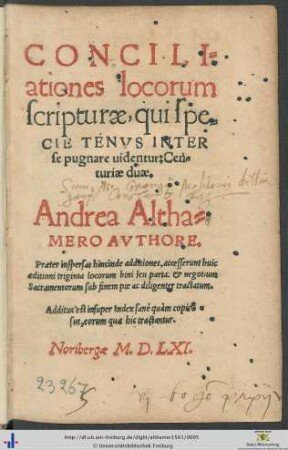 CONCILI-
ationes locorum
scripturæ, qui spe-
CIE TENVS INTER
se pugnare uidentur: Cen-
turiæ duæ,
Andrea Altha-
MERO AVTHORE.
Præter inspersas hincinde additiones, accesserunt huic
æditioni triginta locorum bini seu paria: & negotium
Sacramentorum sub finem pie ac diligenter tractatum.
Additus est insuper Index sanè quàm copio-
sus, eorum quæ hic tractantur.
Noribergæ M. D. LXI.
23267
http://dl.ub.uni-freiburg.de/diglit/althamer1561/0005
© Universitätsbibliothek Freiburg